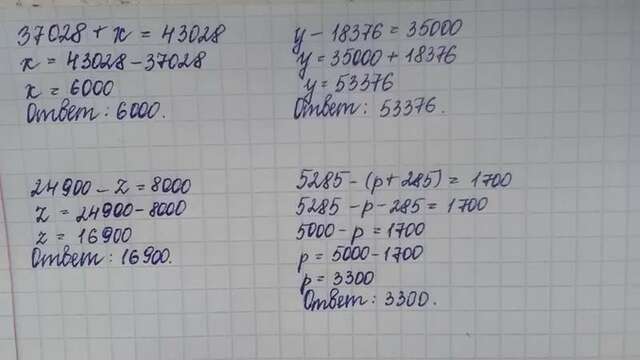 37028 + x = 43028
x = 43028 - 37028
x = 6000
Ответ: 6000.
y - 18376 = 35000
y = 35000 + 18376
y = 53376
Ответ: 53376.
24900 - z = 8000
z = 24900 - 8000
z = 16900
Ответ: 16900.
5285 - (p + 285) = 1700
5285 - p - 285 = 1700
5000 - p = 1700
p = 5000 - 1700
p = 3300
Ответ: 3300.